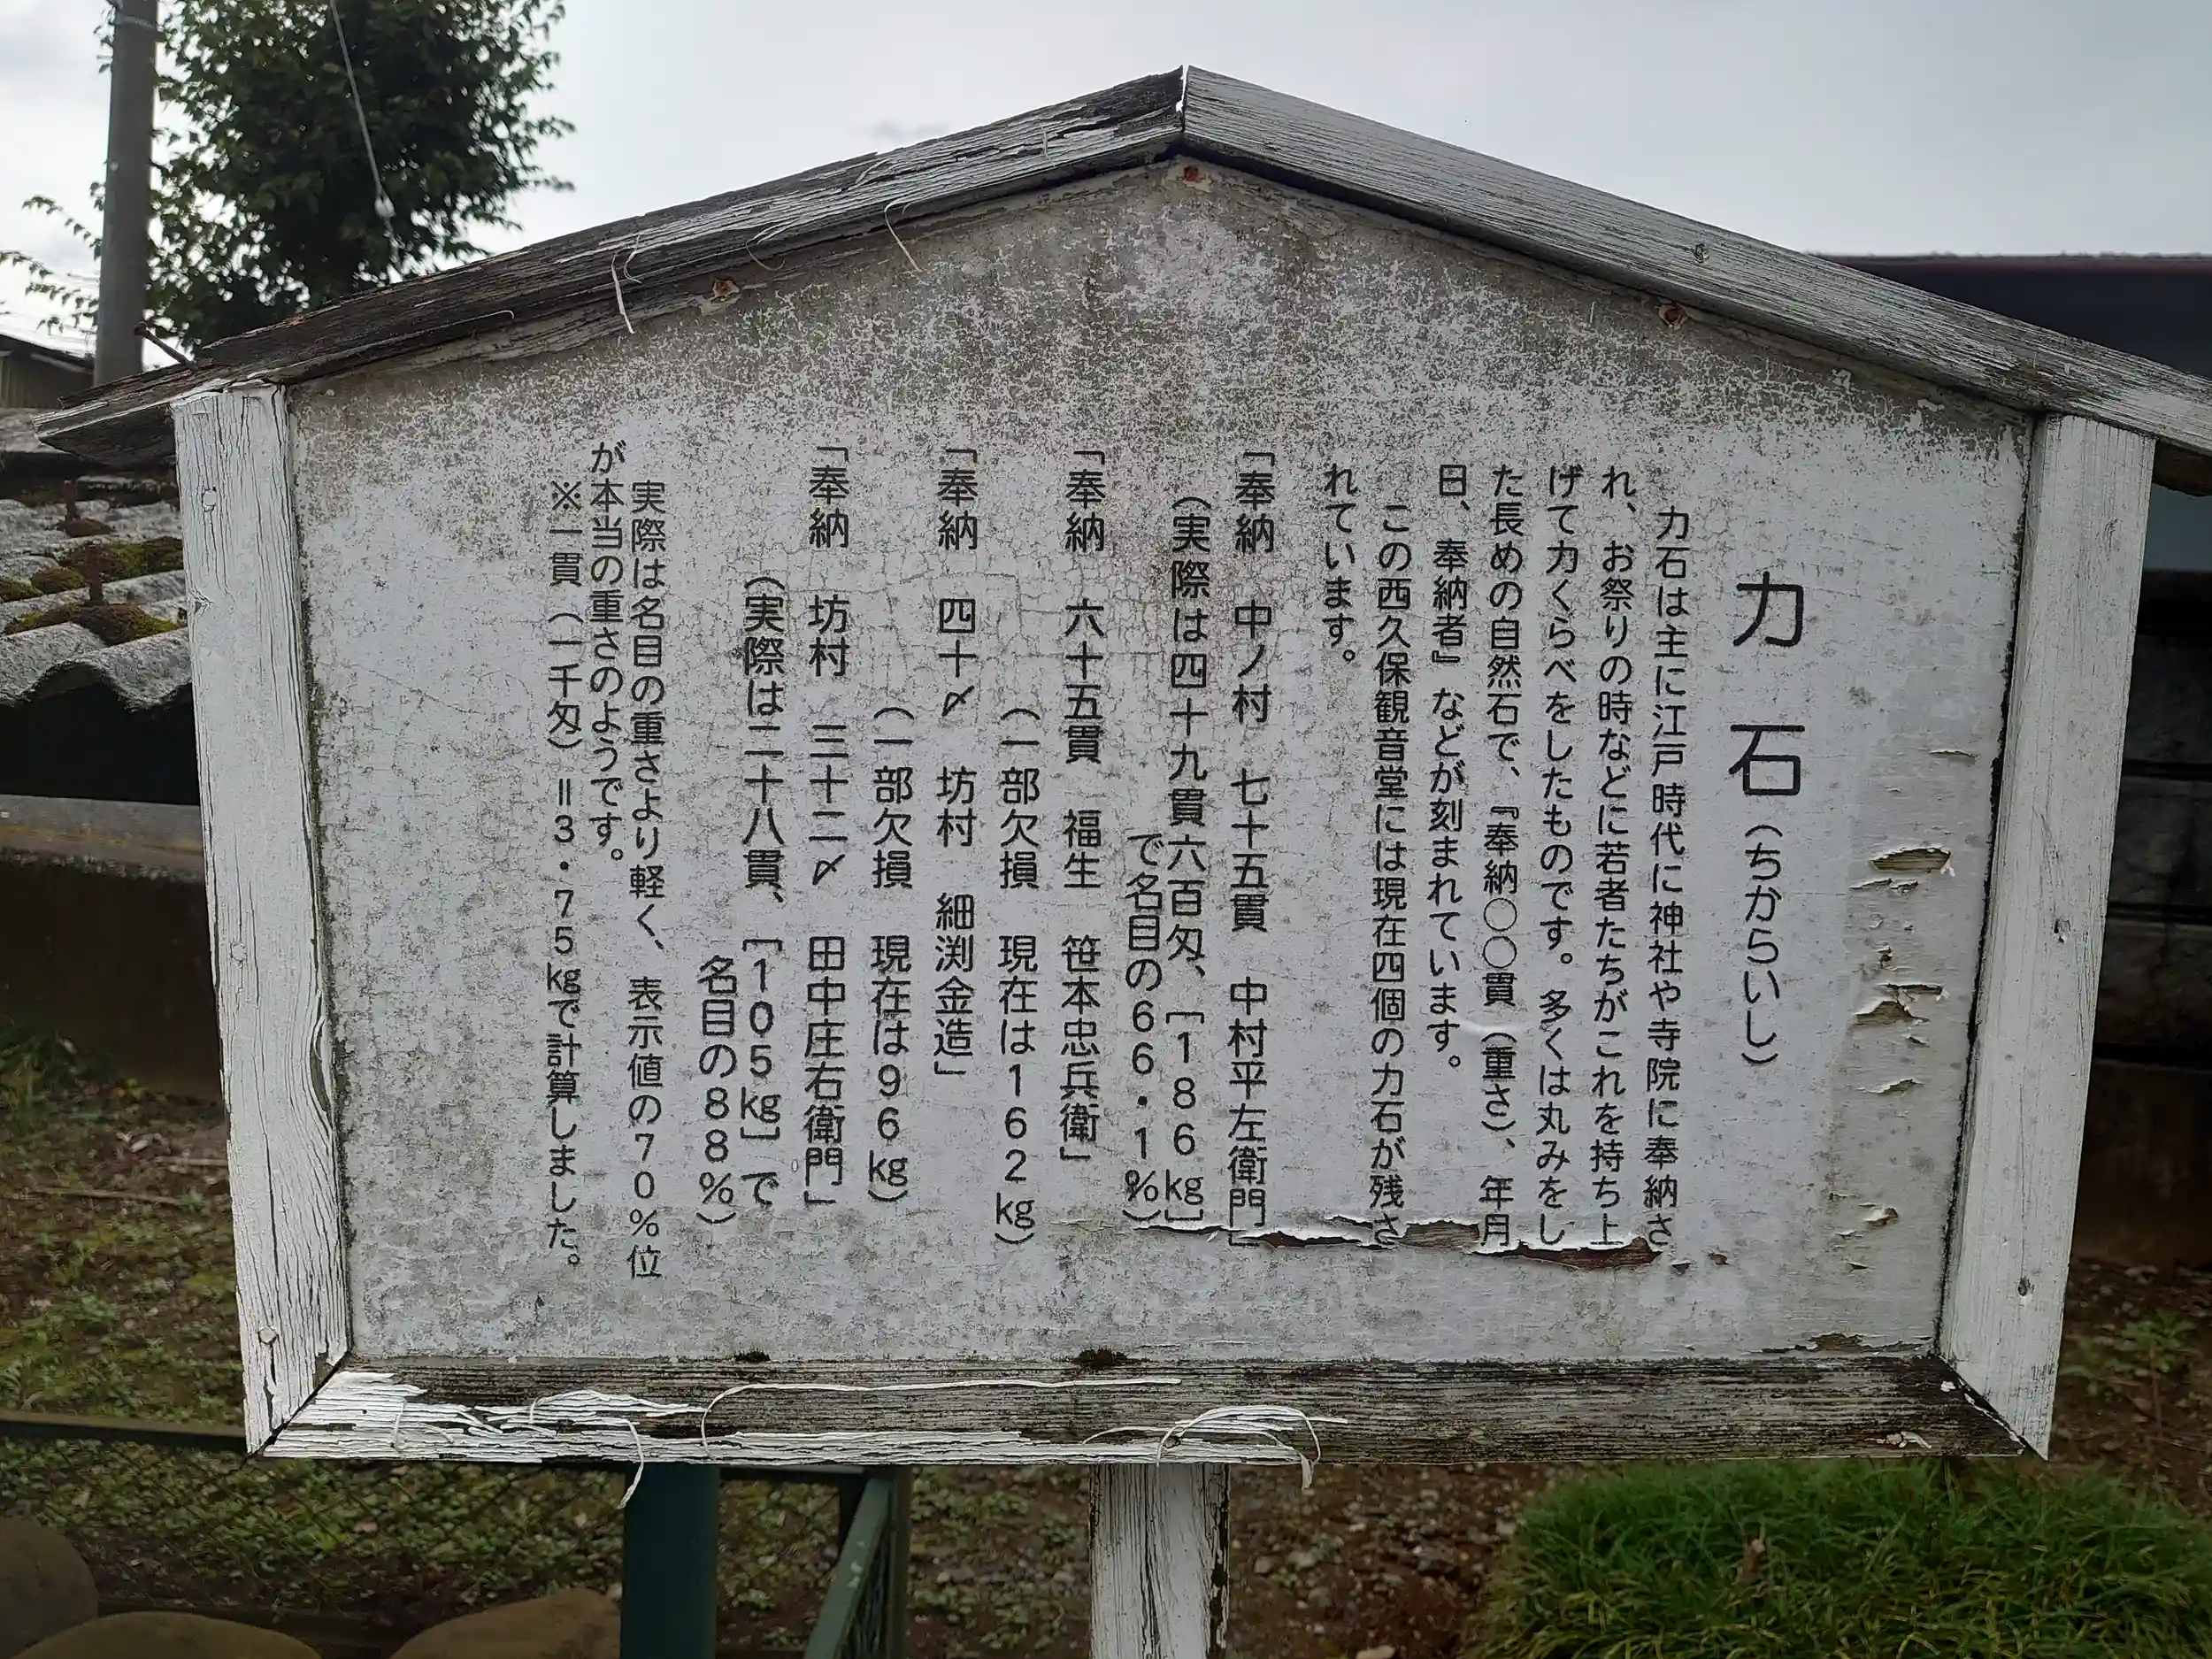 力石(ちからいし)
力石は主に江戸時代に神社や寺院に奉納さ
れ、お祭りの時などに若者たちがこれを持ち上
げて力くらべをしたものです。多くは丸みをし
た長めの自然石で、『奉納〇〇貫(重さ)、年月
日、奉納者』などが刻まれています。
この西久保観音堂には現在四個の力石が残さ
れています。
「奉納 中ノ村 七十五貫 中村平左衛門」
(実際は四十九貫六百匁、[186㎏]
で名目の66・1%)
「奉納 六十五貫 福生 笹本忠兵衛」
(一部欠損 現在は162㎏)
「奉納 四十〆 坊村 細渕金造」
(一部欠損 現在は96㎏)
「奉納 坊村 三十二〆 田中庄右衛門」
(実際は二十八貫、[105㎏]で
名目の88%)
実際は名目の重さより軽く、表示値の70%位
が本当の重さのようです。
※一貫(一千匁)=3・75㎏で計算しました。